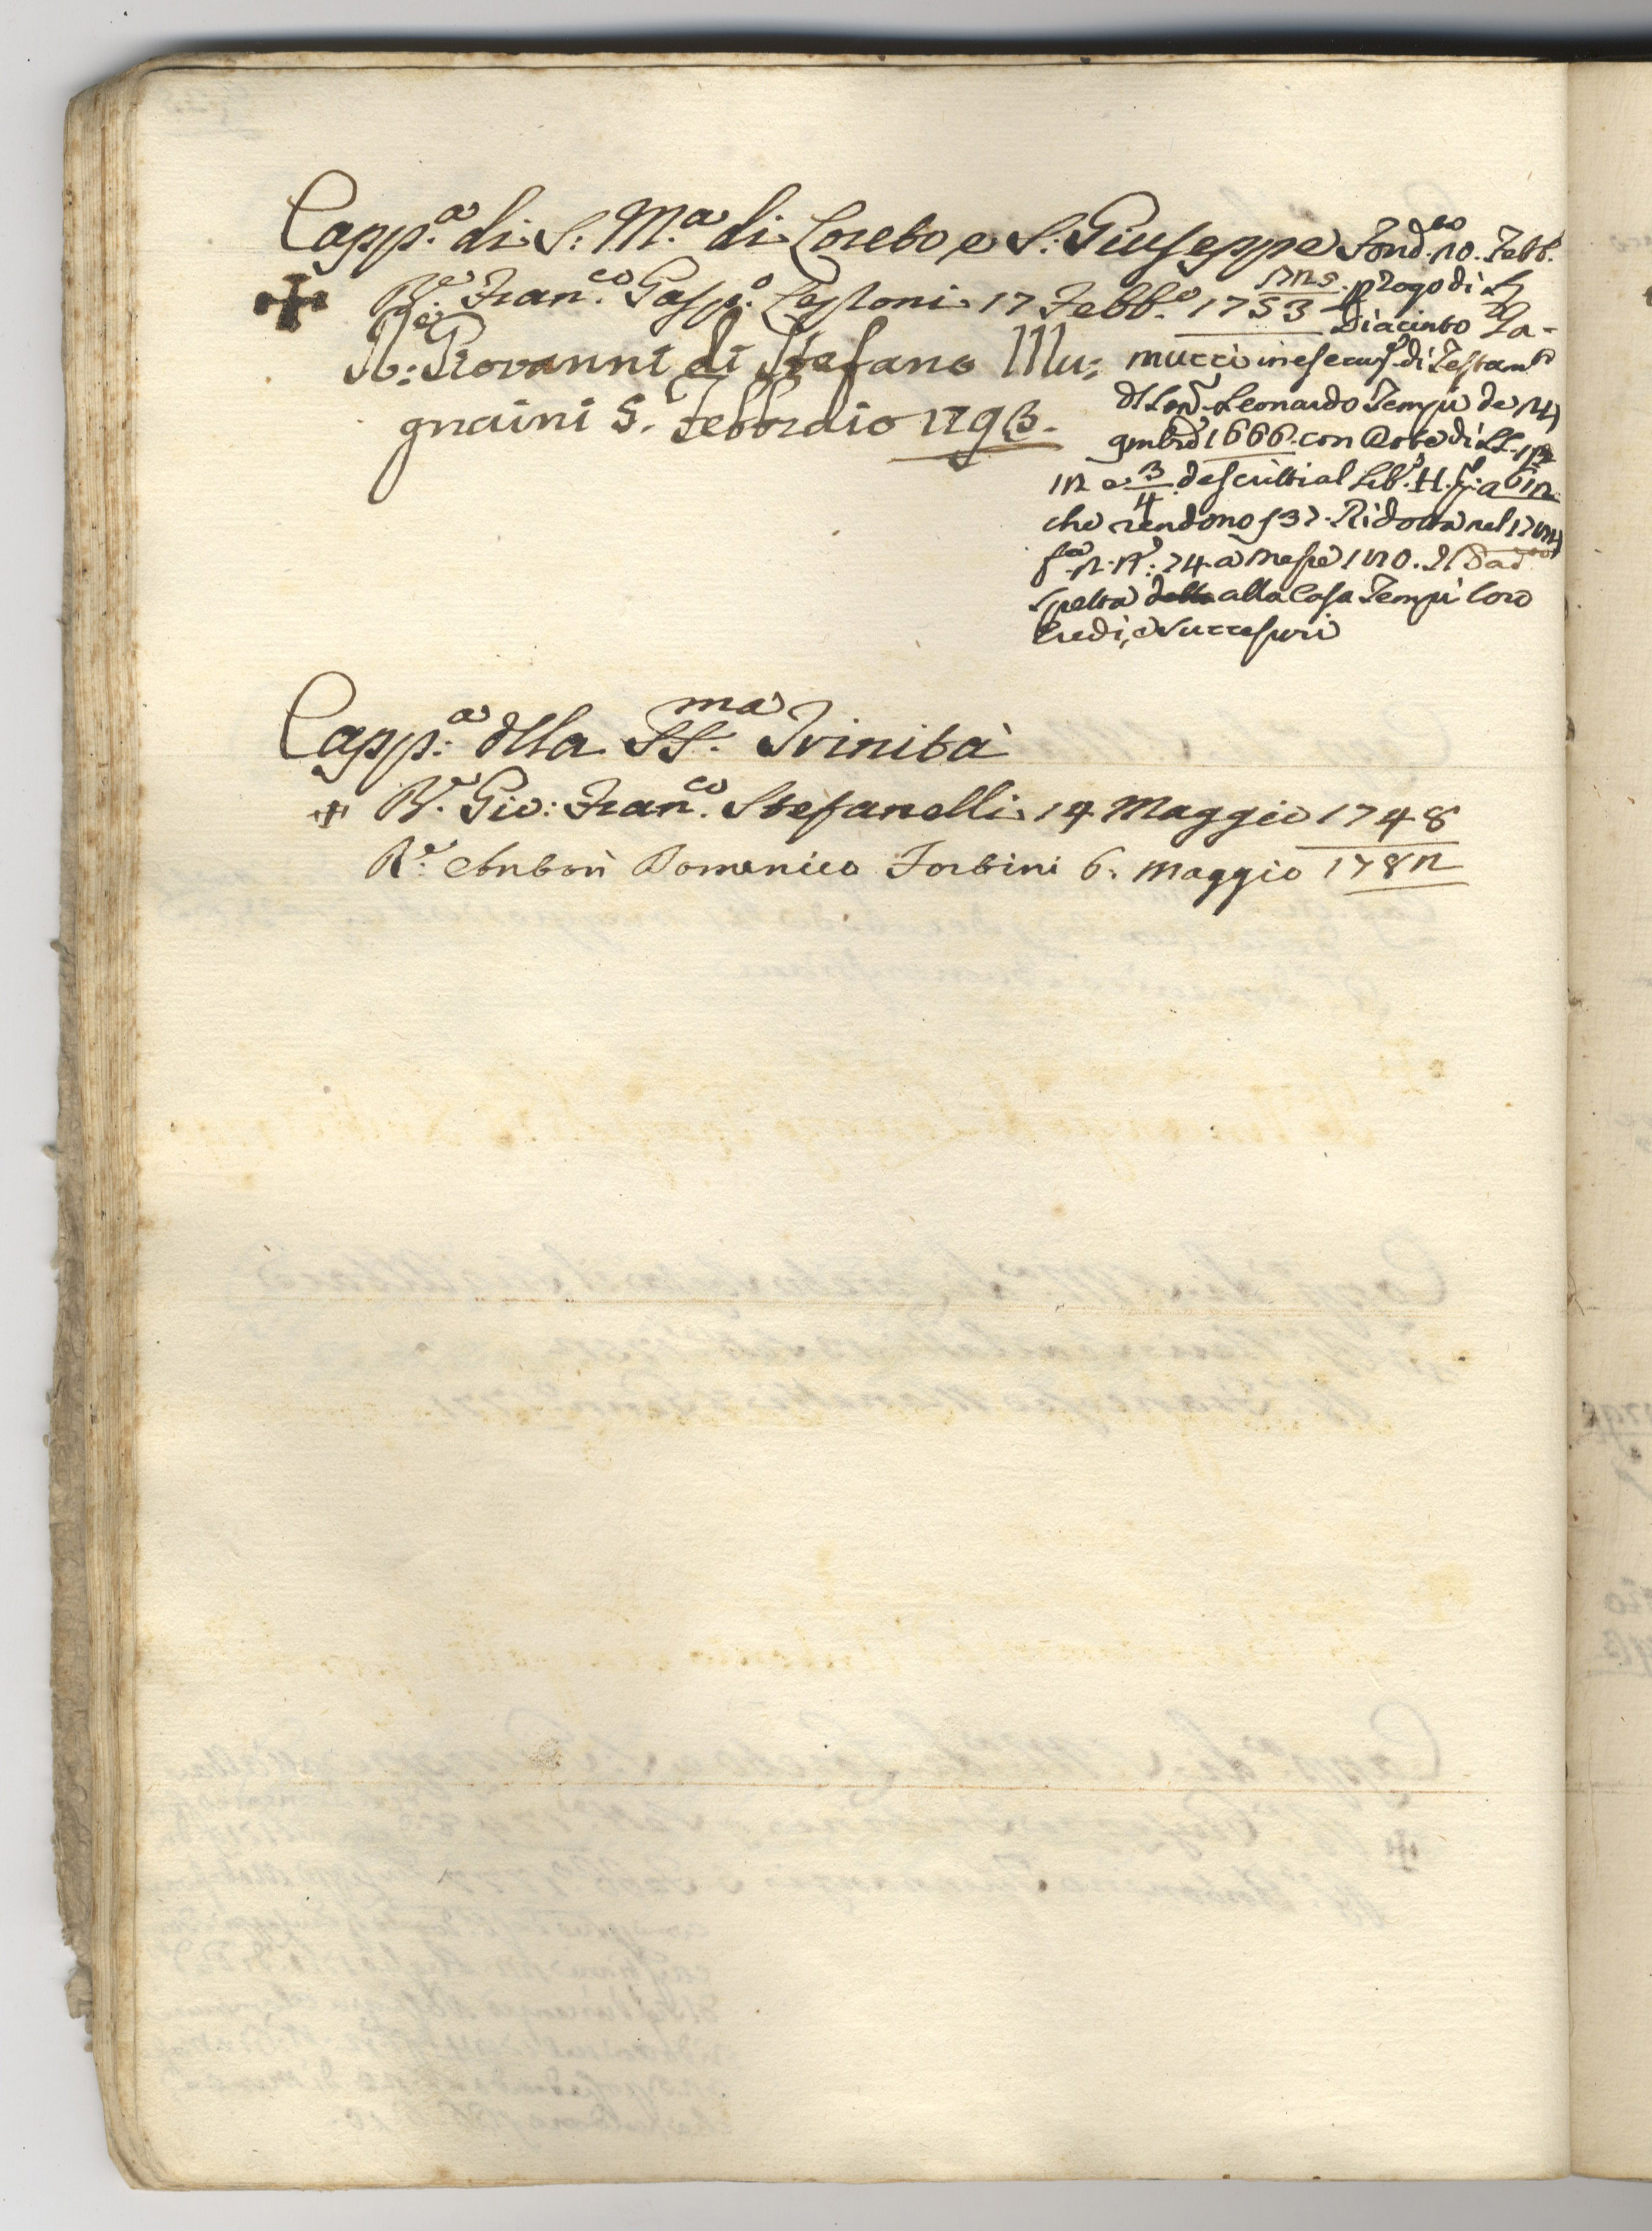 Capp.a di S: M.a di Loreto e S: Giuseppe
R.e Fran.co Gasp.o Cestoni 17 Febb.o 1753
R:e Giovanni di Stefano Mu:
gnaini 5. Febbraio 1793.
Fond.ta 10. Febb.
1725. p Rogo di S
Diacinto Fa-
mucci in esecuz.e di Testam.to
dl Leonardo Tempi de 24
9mbre 1666. con dote di
12 e 3/4. descritti al Lib.o H. a 612
che rendono 37. Ridotta nel
74. a Messe 120. Il
Spetta alla Casa Tempi loro
Eredi, e Successori
Capp:a dlla SS.ma Trinità
R.e Gio: Fran.co Stefanelli 14 Maggio 1748
R.e Anton Domenico Fortini 6. Maggio 1782